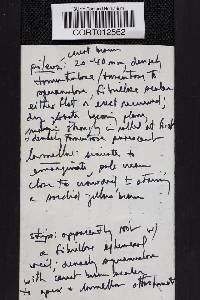 CORT012562
carut brown
pileus: 20-40 mm, densely
tomentulose / tomentose to
squamulose, fibrillose scales
either flat or erect recurved,
dry,
margin strongly in rolled at first
+ densely tomentose
lamellae: sinuate to
emarginate, pale cream
close to crowded + staining
a sordid yellow brown
stipe: apparently not w/
a fibrillose ephemeral
veil, densely squamulose
with carut brown scales
to apex + lamellar attachment